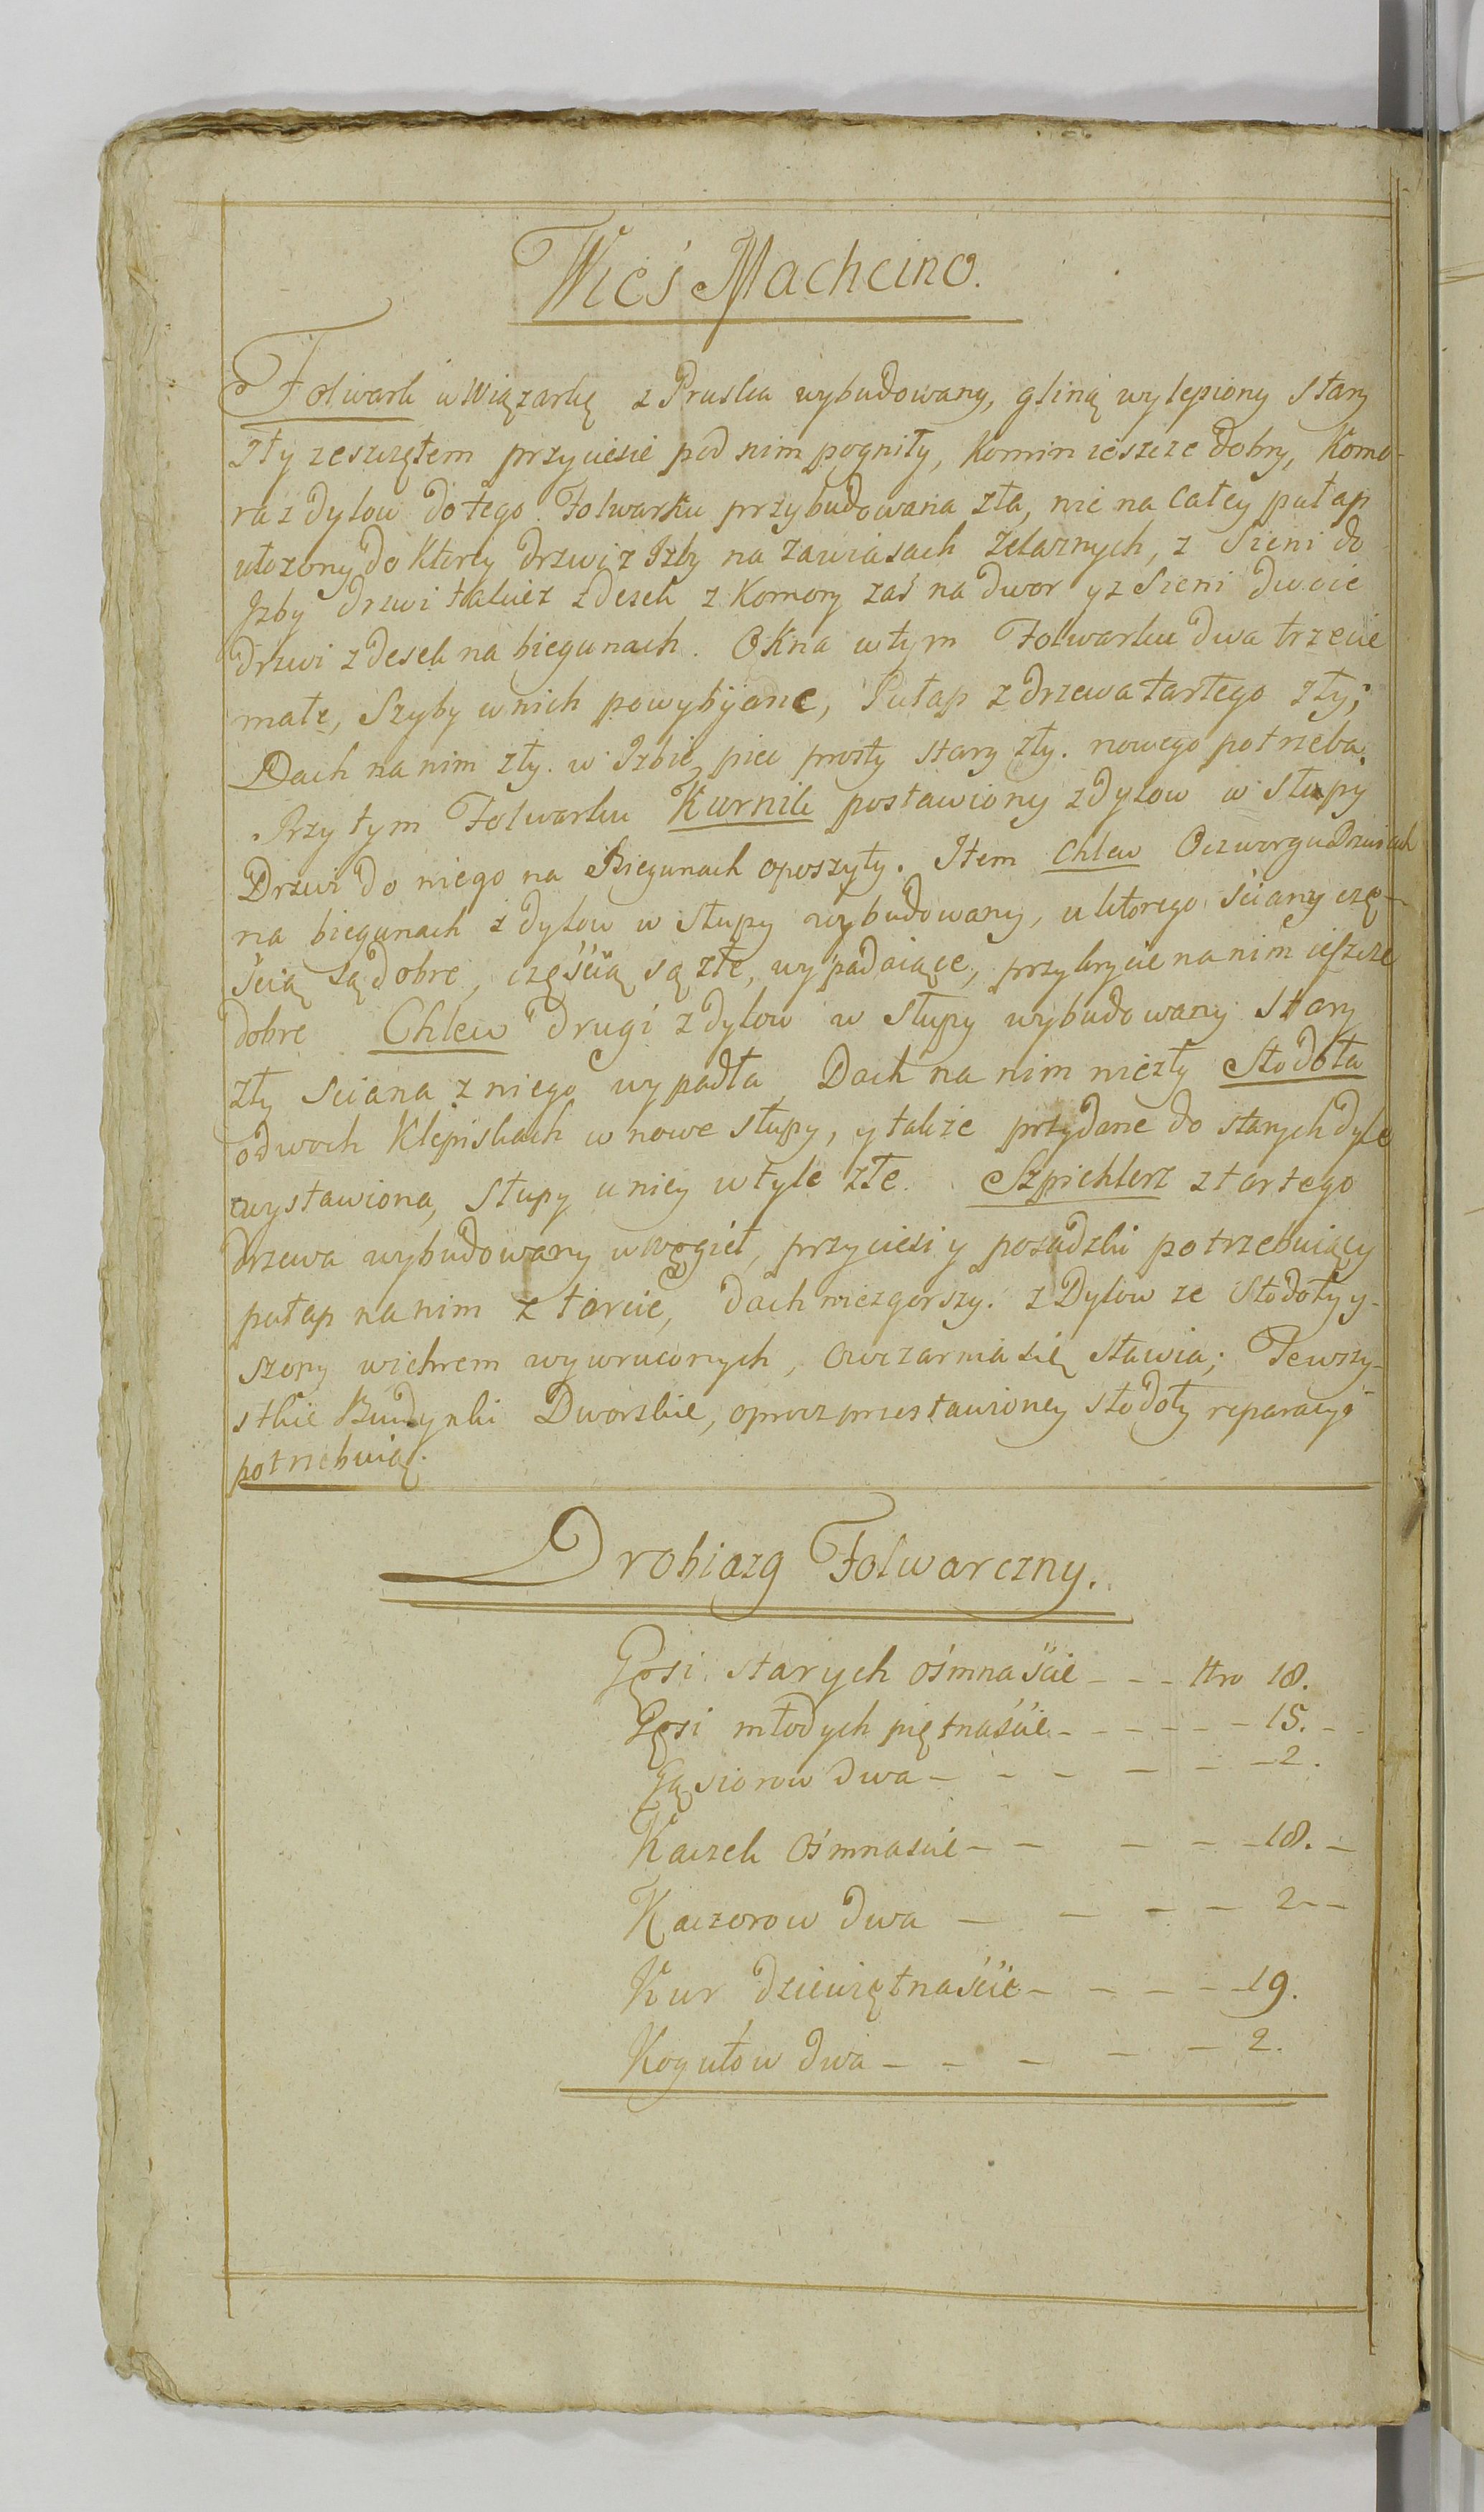 Wieś Machcino.
Folwark w Wiązarkę z Pruska wybudowany, gliną wylepiony stary
zły zeszczętem przyciesie pod nim pogniły, Komin ieszcze dobry, Komo-
ra z dylow do tego Folwarku przybudowana zła, nie na całey pułap
ułozony do Ktorey drzwi z Izby na zawiasach żelaznych, z Sieni do
Izby drzwi takież z desek z Komory zaś na dwor y z Sieni dwoie
drzwi z desek na biegunach. Okna w tym Folwarku dwa trzecie
małe, Szyby w nich powybijane, Pułap z drzewa tartego zły;
Dach na nim zły. w Izbie piec prosty stary zły. nowego potrzeba.
Przy tym Folwarku Kurnik postawiony z dylow w słupy
Drzwi do niego na Biegunach oposzyty. Item Chlew Oczworgu Drzwiach
na biegunach z dylow w słupy wybudowany, u ktorego ściany czę-
ścią są dobre, częścią są złe, wypadaiące, przykrycie na nim ieszcze
dobre Chlew Drugi z dylow w słupy wybudowany stary
zły sciana z niego wypadła Dach na nim niezły Stodoła
o dwoch Klepiskach w nowe słupy, y także przydane do starych dyle
wystawiona, słupy u niey w tyle złe. Szpichlerz z tartego
drzewa wybudowany w węgieł, przyciesi y posadzki potrzebuiący
pułap na nim z tarcic, dach niezgorszy. z Dylow ze Stodoły y
szopy wichrem wywruconych, owczarnia się stawia; Te wszy-
stkie Budynki Dworskie, oprocz przestawioney stodoły reparacyi
potrzebuią.
Drobiazg Folwarczny.
Gęsi starych ośmnaście - - - Nro 18.
Gęsi młodych piętnaście - - - - - - 15. -
Gąsiorow dwa - - - - - - 2.
Kaczek ośmnascie - - - - - 18. -
Kaczorow dwa - - - - 2 - -
Kur dziewiętnaście - - - - 19.
Kogutow dwa - - - - - 2.